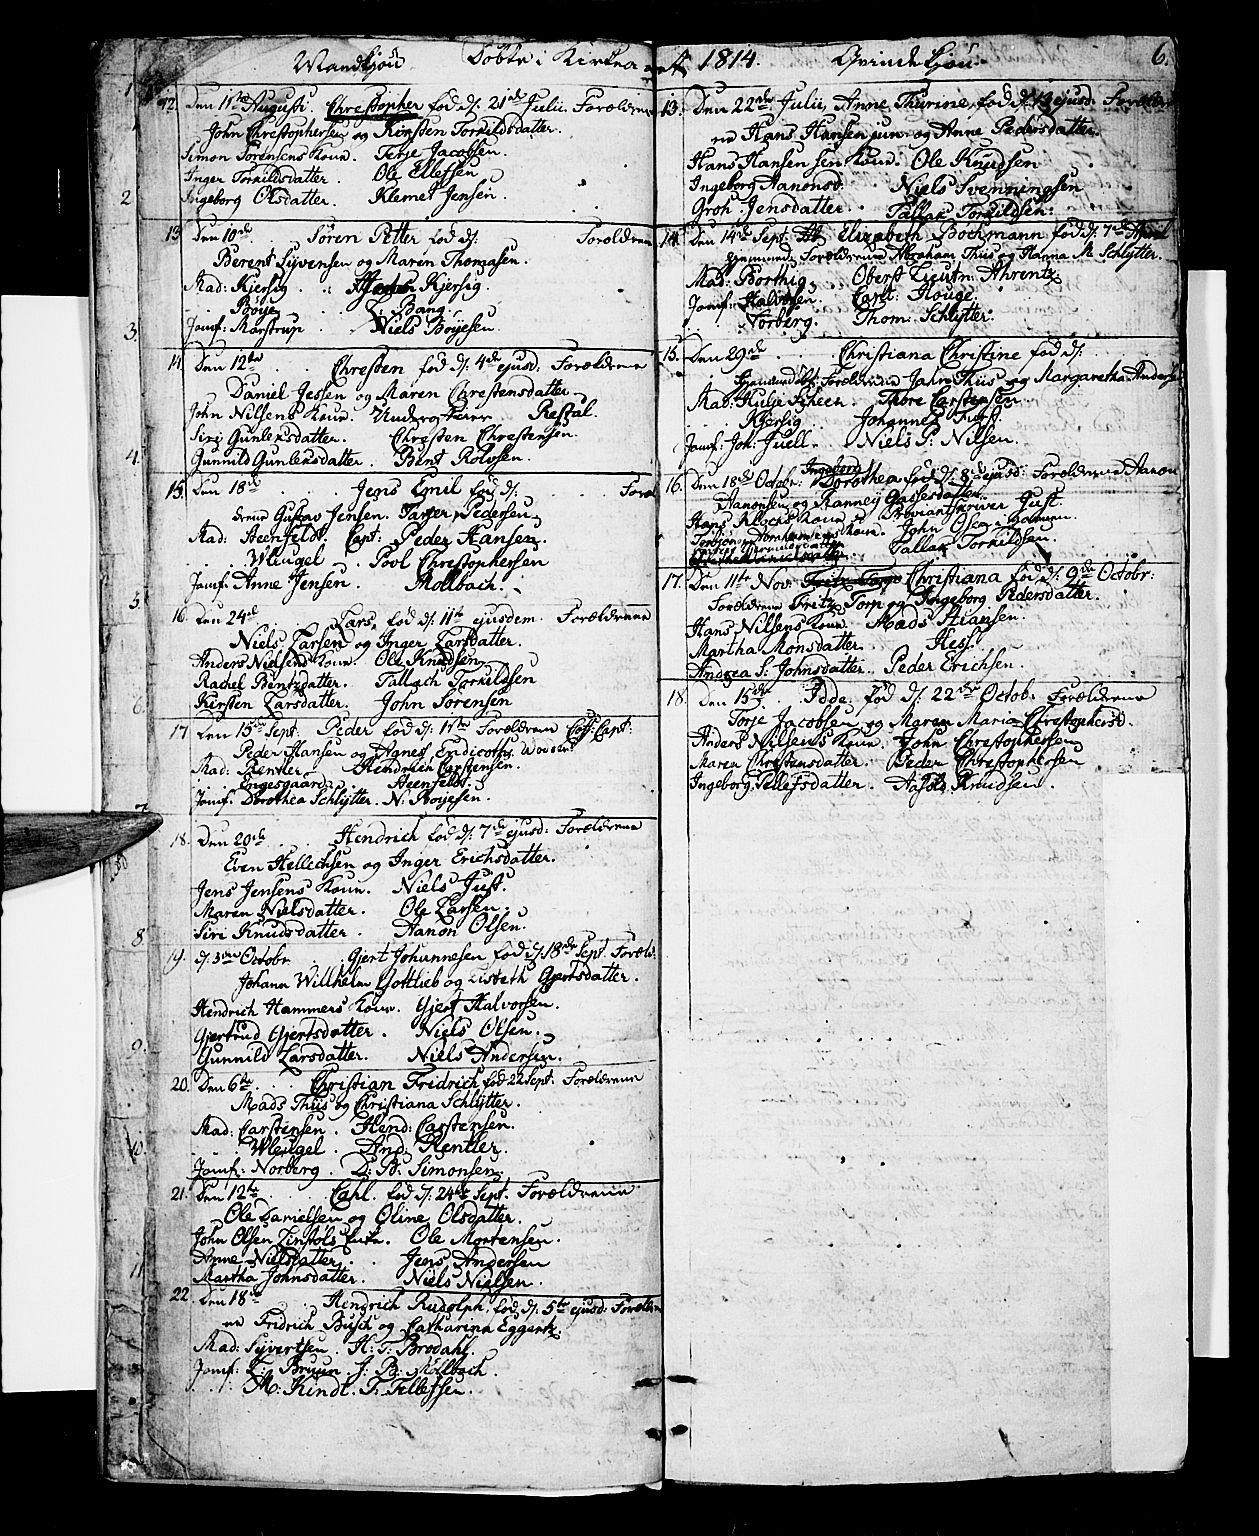 Mandkjön Döbte i Kirken
12. Den 11te Augusti. Christopher fød d: 21de Julii. Forældrene
John Christophersen og Kirsten Torkildsdatter.
Simon Sørensens Koun. Terje Jacobsen.
Inger Torkildsdatter. Ole Ellefsen
Ingeborg Olsdatter. Klemet Jensen.
13 Den 10de. Søren Petter fød d: Forældrene
Berent Syvensen og Maren Thomasen.
Mad: Kjersig Kjersig.
Boye. L. Bang.
Jomf: Marstrup Niels Boyesen.
14 Den 12te Christen fød d: 4de ejusd. Forældrene
Daniel Jessen og Maren Christensdatter
John Nilsens Koun Restal.
Siri Gunlersdatter. Christen Christensen.
Gunnild Gunlersdatter. Bent Rolvsen.
15. Den 18de Jens Emil fød d: Foræl
drene Gustav Jensen. Tarjer Pedersen.
Mad: Heenfeldt. Capt: Peder Hansen.
Wleugel. Povl Christophersen
Jomf: Anne Jensen. Mollbach.
16. Den 24de Lars, fød d: 11te ejusdem. Forældrene
Niels Larsen og Inger Larsdatter.
Anders Nielsens Koun Ole Knudsen
Rachel Bentzdatter. Tallach Torkildsen
Kirsten Larsdatter. John Sørensen
17 Den 15de Sept: Peder fød d: 11te Forældrene Capt:
Peder Hansen og Agnes Endicotts
Mad: Rentler Hendrich Carstensen.
Engesgaard. Heenfeldt.
Jomf: Dorothea Schlytter. N: Boyesen.
18. Den 20de Hendrich fød d: 7de ejusd: Forældrene
Even Hellechsen og Inger Erichsdatter.
Jens Jensens Koun. Niels Just.
Maren Nielsdatter. Ole Larsen.
Siri Knudsdatter. Aanon Olsen.
19. d: 3die Octobr. Gjert Johannesen fød d: 18de Sept. Foræld:
Johann Willhelm Gottlieb og Lisbeth Gjertsdatter.
Hendrich Hammers Koun. Gjert Halvorsen.
Gjertrud Gjertsdatter. Niels Olsen.
Gunnild Larsdatter. Niels Andersen.
20. Den 6te Christian Fridrich fød 22 Sept: Forældrene
Mads Thiis og Christiana Schlytter.
Mad: Carstensen. Hend: Carstensen.
Wleugel. And: Rentler.
Jomf: Norberg. D: B: Simonsen.
21. Den 12te Cahl. fød d: 24de Sept. Forældrene
Ole Danielsen og Oline Olsdatter.
John Olsen Ole Mortensen.
Anne Nielsdatter. Jens Andersen
Martha Johnsdatter. Niels Nielsen.
22. Den 18de Hendrich Rudolph, fød d: 5te ejusd: Foræld
ne Fridrich Busch og Catharina Eggertz.
Mad: Syvertsen. H: T: Brodahl.
Jomf: L: Bruun. J. B: Mollbach.
M: Kindt. T: Tellefsen.
1814. Qvindekjön. 6.
13. Den 22de Julii, Anne Thurine, fød d: 13 ejusd Foræld
ne Hans Hansen jun: og Anne Pedersdatter.
Hans Hansen sen Koun. Ole Knudsen
Ingeborg Aanonsd. Niels Svenningsen
Groh Jensdatter. Tallak Torkildsen.
14. Den 14de Sept: Elizabeth Bochmann fød d: 7de April
Forældrene Abraham Thiis og Hanna M. Schlytter.
Mad: Borthig. Oberst Lieutn: Ahrentz
Jomf: Halvorsen. Carl: Houge
Norberg. Thom: Schlytter
15. Den 29de Christiana Christine fød d:
Forældrene Jahn Thiis og Margaretha Anders
Mad: Thore Carstensen.
Kjersig. Johannes Thiis.
Jomf: Joh: Juell. Niels P: Nilsen.
16. Den 18de Octobr: Ingeborg Dorothea fød d: 8de ejusd: Forældrene Aanon
Aanonsen og Ranney Gassesdatter.
Hans Klochs Koun. Proviantskriver Just.
John Olsen
Tallak Torkildsen.
17. Den 11te Nov. Fritz Torp Christiana fød d: 9de Octobr:
Forældrene Fritz Torp og Ingeborg Pedersdatter.
Hans Nilsens Koun. Mads Stiansen.
Martha Monsdatter. Hess.
Andrea S: Johnsdatter. Peder Erichsen.
18. Den 15de Idde, fød d: 22de Octobr Forældrene
Torje Jacobsen og Maren Maria Christophersd.
Anders Nilsens Koun. John Christophersen
Maren Christensdatter. Peder Christophersen
Ingeborg Tellefsdatter. Knudsen.